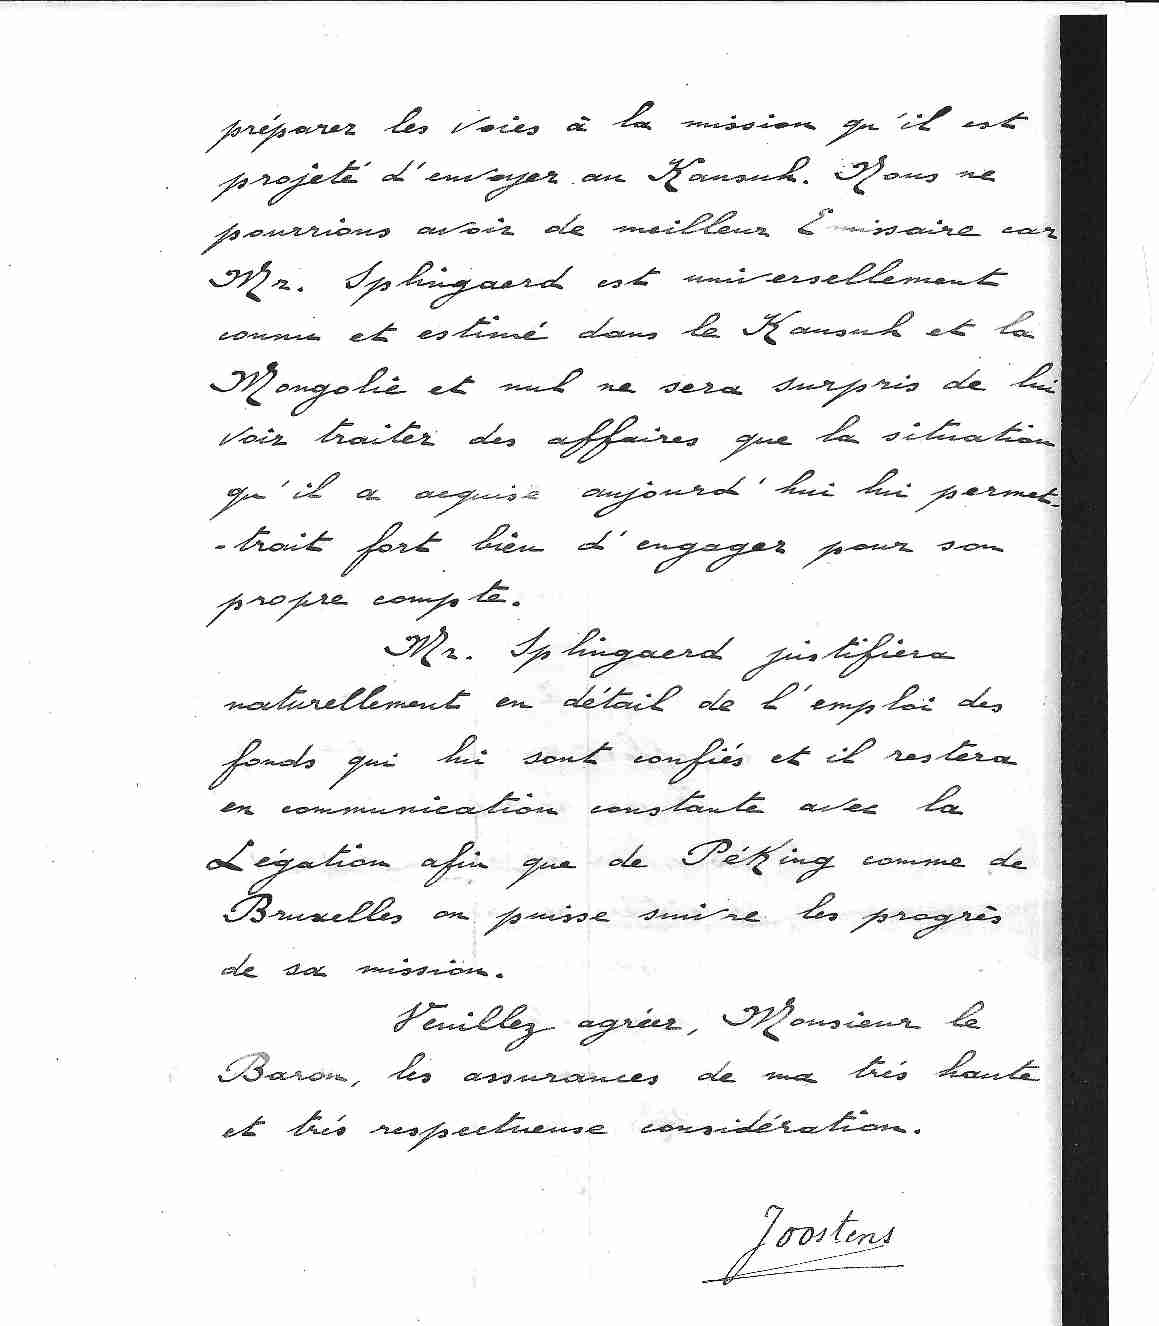 préparer les voies à la mission qu'il est
projeté d'envoyer au Kansuh. Nous ne
pourrions avoir de meilleur Emissaire car
Mr. Splingaerd est universellement
connu et estimé dans le Kansuh et la
Mongolie et nul ne sera surpris de lui
voir traiter des affaires que la situation
qu'il a acquise aujourd'hui lui permet-
-trait fort bien d'engager pour son
propre compte.
Mr. Splingaerd justifiera
naturellement en détail de l'emploi des
fonds qui lui sont confiés et il restera
en communication constante avec la
Légation afin que de Péking comme de
Bruxelles on puisse suivre les progrès
de sa mission.
Veuillez agréer, Monsieur le
Baron, les assurances de ma très haute
et très respectueuse considération.
Joostens